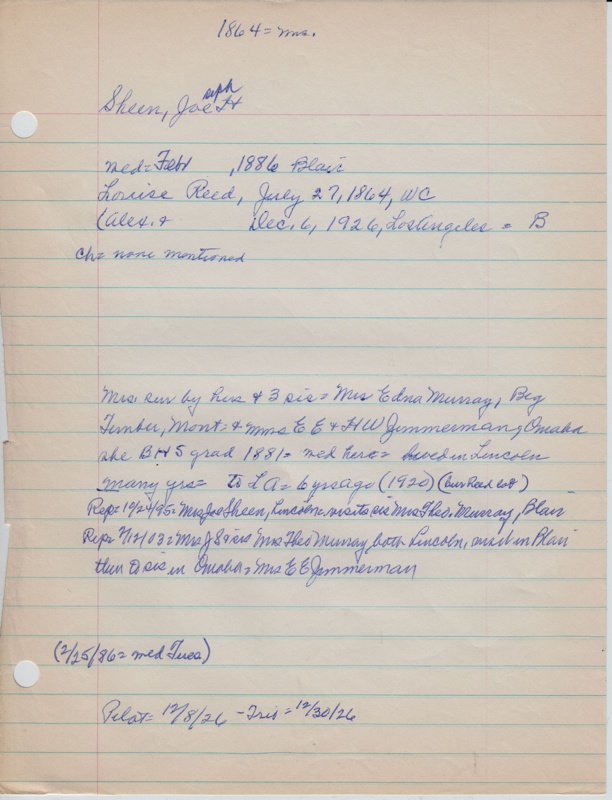 1864 = Mrs.
Sheen, Joseph H
med = Febr , 1886 Blair
Louise Reed, July 27, 1864, WC
(Alex. + Dec. 6, 1926, Los Angeles = B
ch = none mentioned
Mrs. sur by hus + 3 sis = Mrs Edna Murray, Big
Timber, Mont = + Mmes E E + H W Jimmerman, Omaha
she BHS grad 1881 = med here = lived in Lincoln
many yrs = to LA = 6 yrs ago (1920) (bur Reed lot)
Rep = 12/24/95 = Mrs Joe Sheen, Lincoln = visits sis Mrs Theo Murray, Blair
Rep = 7/12/03 = Mrs J S + sis Mrs Theo Murray, both Lincoln, visit in Blair
then to sis in Omaha = Mrs E E Jimmerman
(2/25/86 = med Tues)
Pilot = 12/8/26 - Trib = 12/30/26